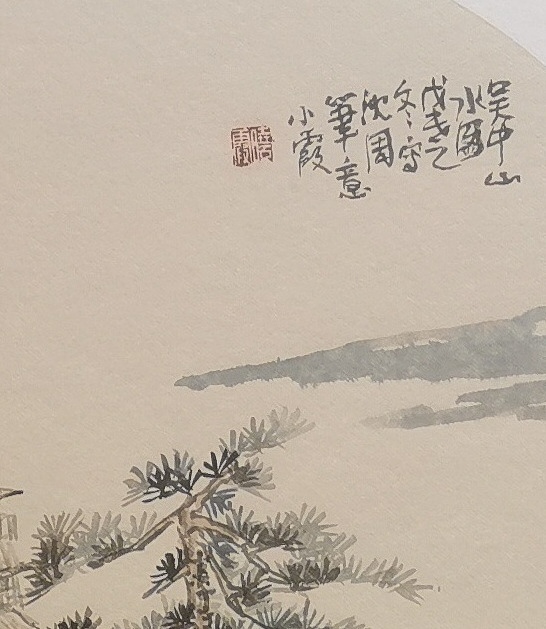 吴中山
水图
戊戌之
冬写
沈周
筆意
小霞